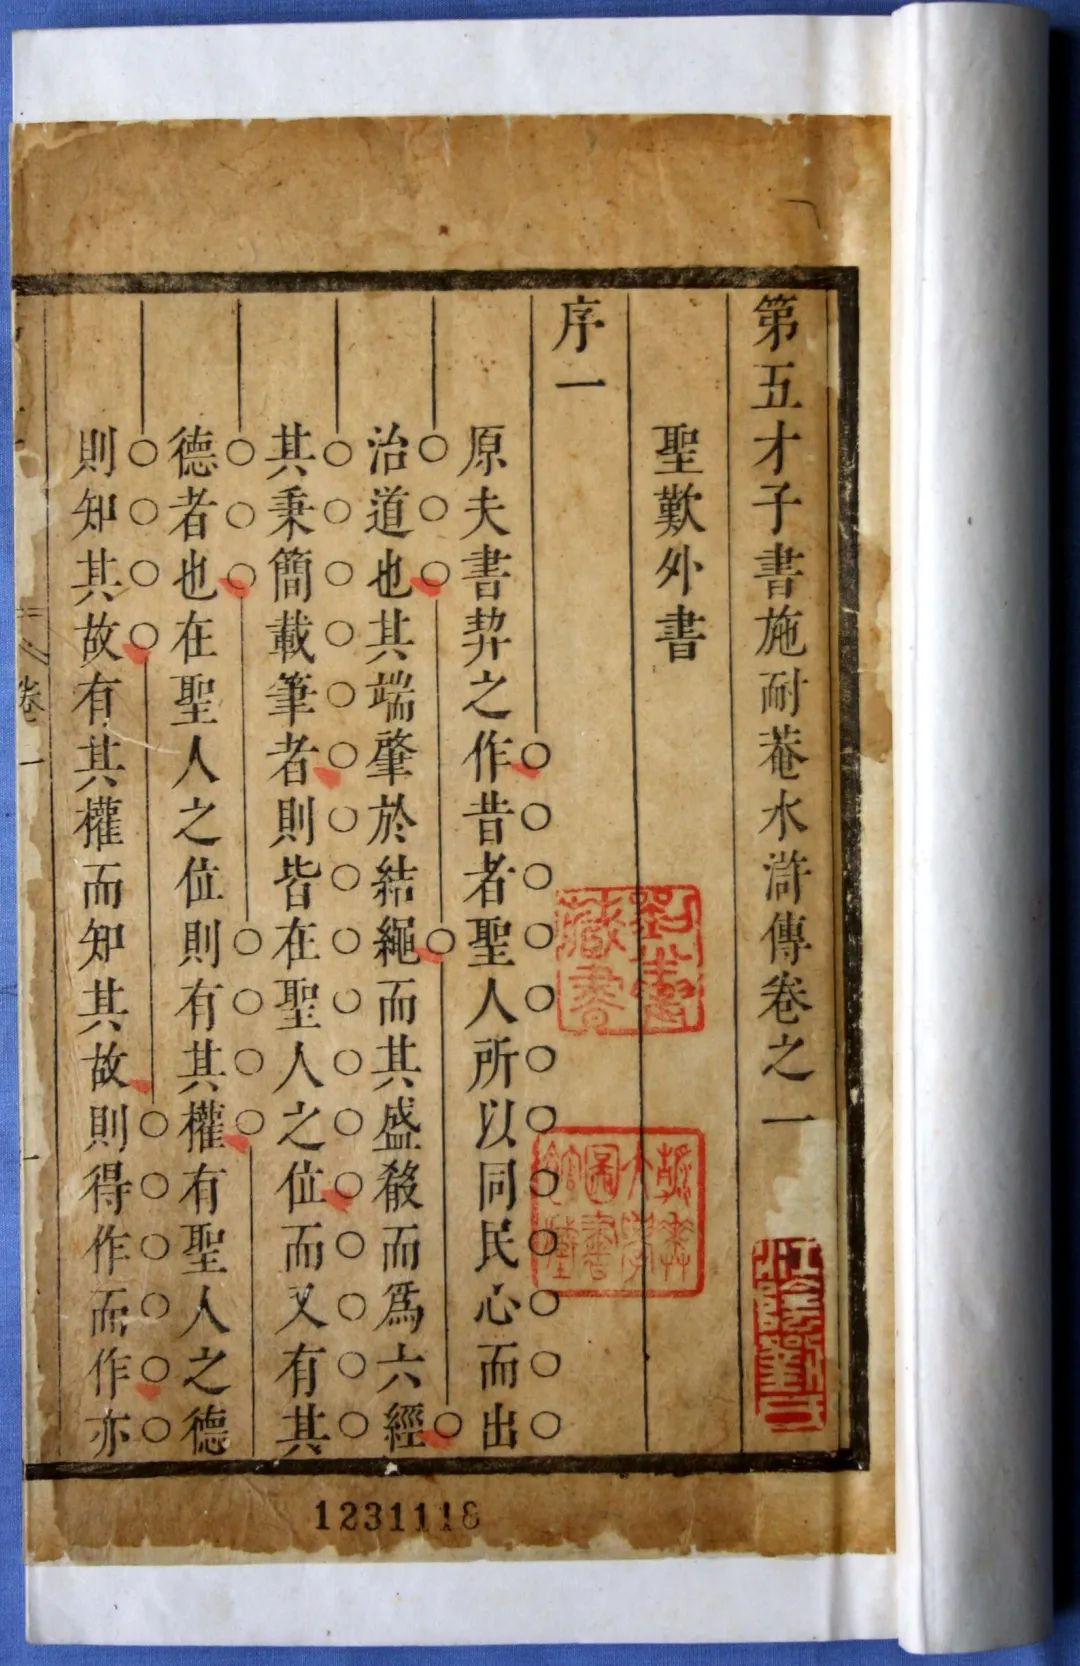 第五才子書施耐菴水滸傳卷之一
聖歎外書
序一
原夫書契之作昔者聖人所以同民心而出
治道也其端肇於結繩而其盛殽而爲六經
其秉簡載筆者則皆在聖人之位而又有其
德者也在聖人之位則有其權有聖人之德
則知其故有其權而知其故則得作而作亦
卷一
藏書
圖書
江陰劉氏
1231118